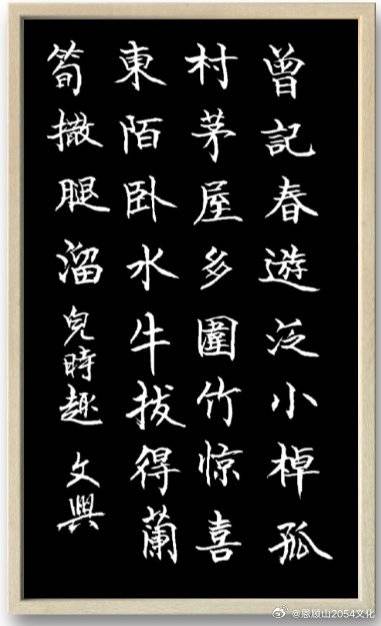 曾記春遊泛小棹孤
村茅屋多圍竹惊喜
東陌卧水牛拔得蘭
筍撒腿溜兒時趣 文興
@恩顾山2054文化